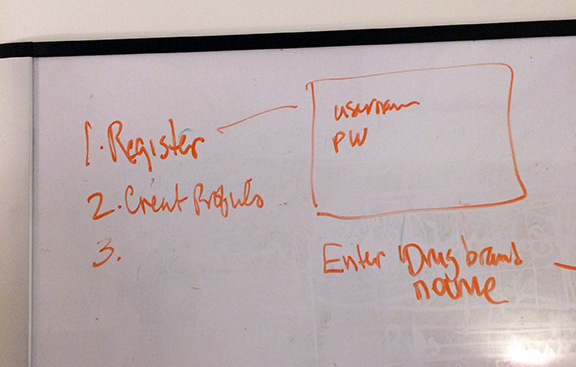 1. Register
2. Creat Profuls
3.
username
PW
Enter Drug brand
name